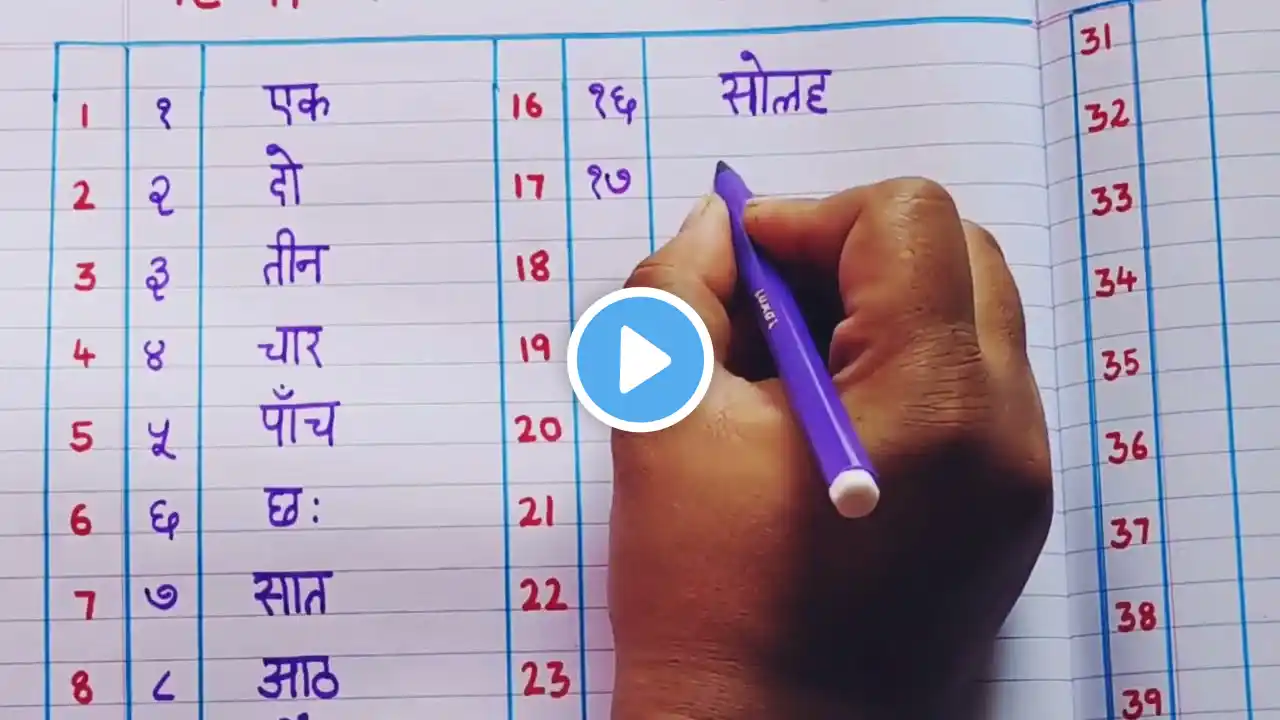 1 १ एक
2 २ दो
3 ३ तीन
4 ४ चार
5 ५ पाँच
6 ६ छः
7 ७ सात
8 ८ आठ
16 १६ सोलह
17 १७
18
19
20
21
22
23
31
32
33
34
35
36
37
38
39
luxor